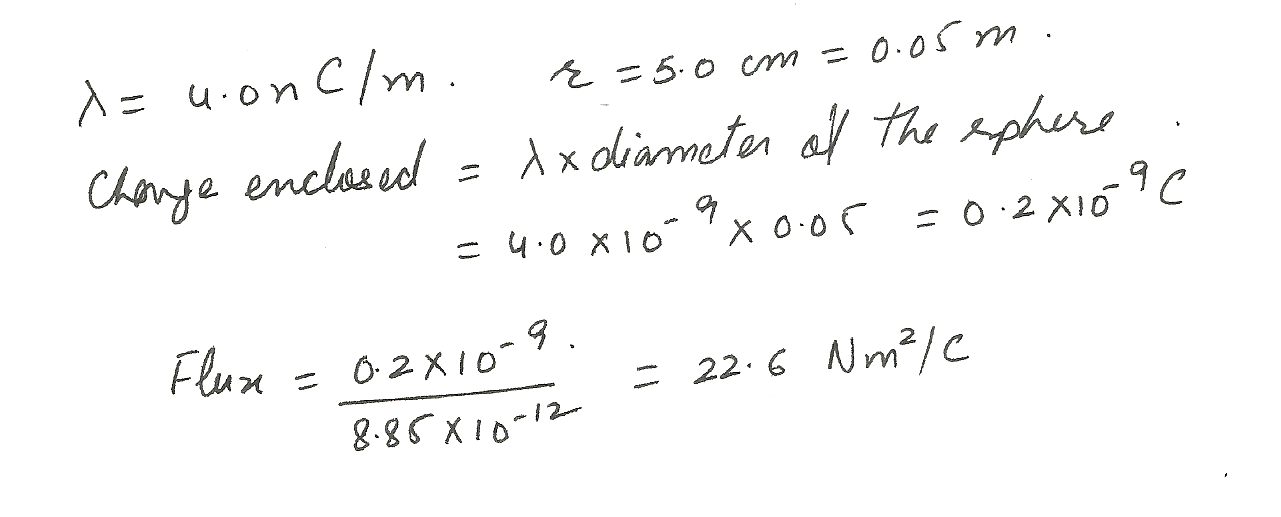 λ = 4.0 n C/m. r = 5.0 cm = 0.05 m.
Charge enclosed = λ x diameter of the sphere.
= 4.0 x 10⁻⁹ x 0.05 = 0.2 x 10⁻⁹ C
Flux = 0.2 x 10⁻⁹. / 8.85 x 10⁻¹² = 22.6 Nm²/C